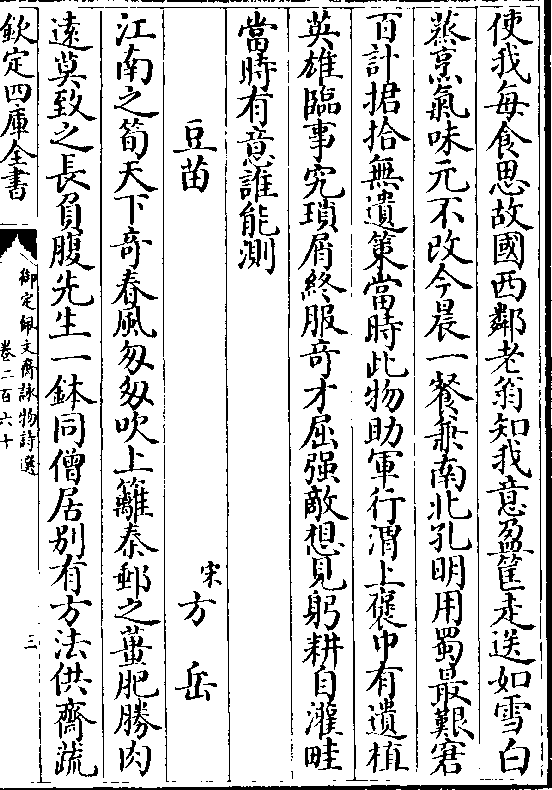 使我每食思故國西鄰老翁知我意盈筐走送如雪白
蒸烹氣味元不改今晨一餐兼南北孔明用蜀最艱窘
百計捃拾無遺策當時此物助軍行渭上褒中有遺植
英雄臨事究瑣屑終服奇才屈强敵想見躬耕自灌畦
當時有意誰能測
豆苗
宋方岳
江南之筍天下奇春風匆匆吹上籬秦郵之薑肥勝肉
遠莫致之長負腹先生一鉢同僧居别有方法供齋蔬
欽定四庫全書
御定佩文齋詠物詩選
卷二百六十
三